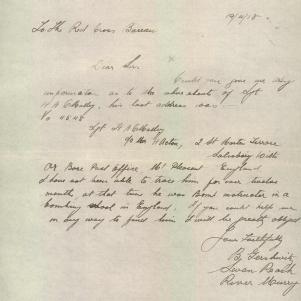 19/4/18
To The Red Cross Bureau
Dear Sir
Could you give me any
information as to the whereabouts of Sgt
H A O'Malley, his last address was
No 4548
Sgt H A O'Malley
c/o Mrs Acton, 2 St Terrace
Salisbury Wilts
Or Base Post Office, Mt Pleasant England
I have not been able to trace him for over twelve
months, at that time he was Bomb instructor in a
bombing school in England. If you could help me
in any way to find him I will be greatly obliged
Yours Faithfully
Swan Reach
River Murray